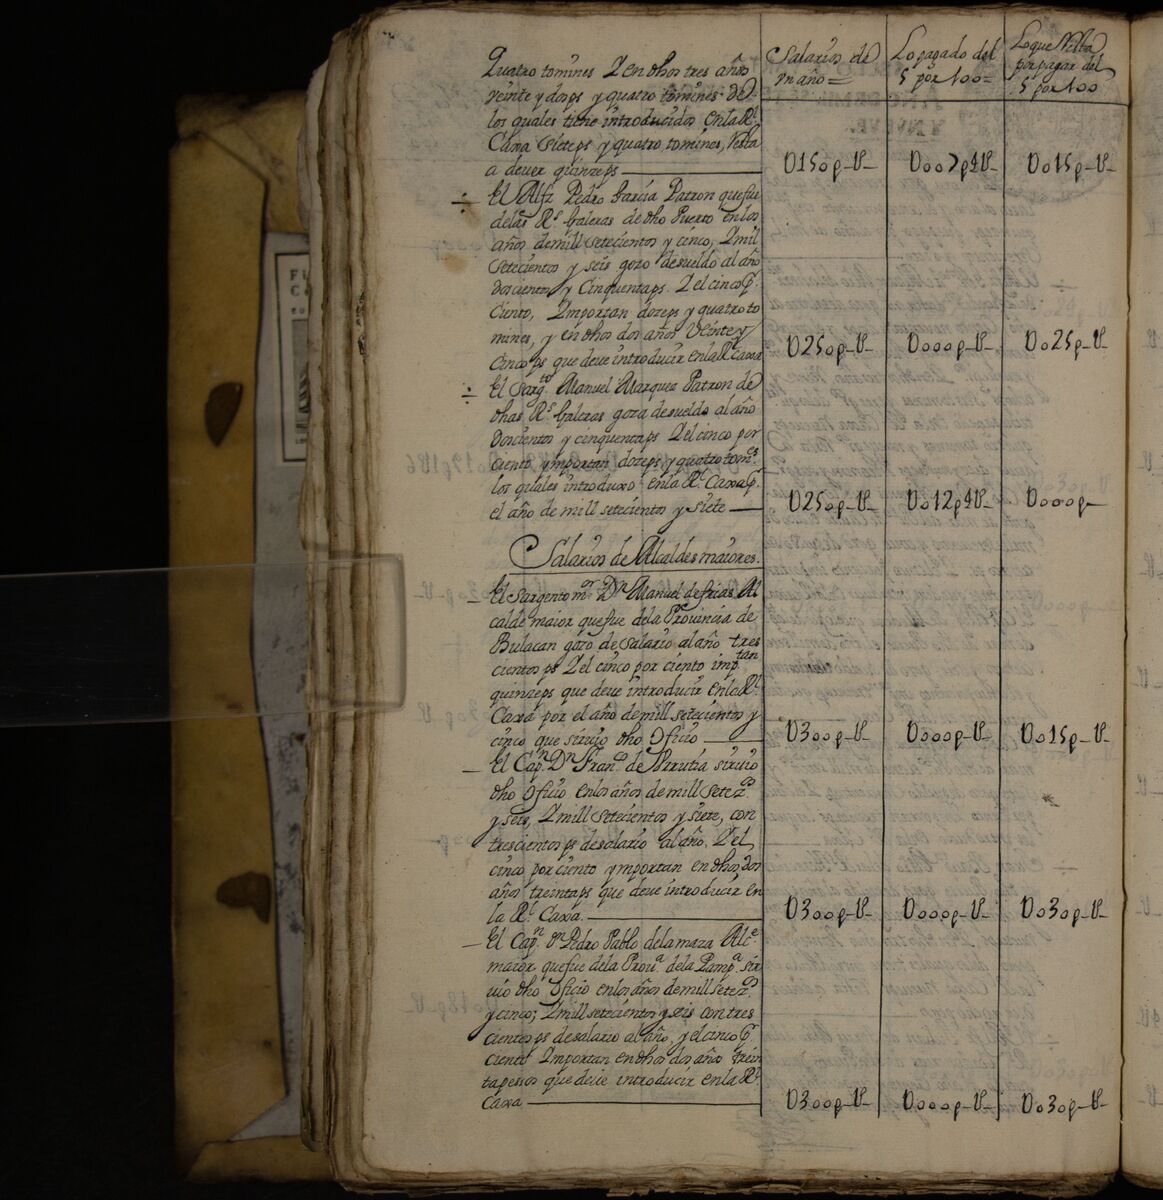 Salarios de
Vn año=
Lo pagado del
5 por 100=
Lo que Resta
por pagar del
5 por 100
Quatro tomines Y en dhos tres años
veinte y dosps y quatro tomines de
los quales tiene introducidos en la Rl.
Caxa sieteps y quatro tomines, Resta
a dever quinzeps
U150p-U-
U007p4U-
U015p-U-
El Alfz Pedro Garcia Patron que fue
de las Rs. Galeras de dho Puerto en los
años de mill setecientos y cinco, Y mil
setecientos y seis gozo de sueldo al año
doscientos y Cinquentaps. Y el cinco p.
Ciento, Ymportan dozeps y quatro to
mines, y en dhos dos años Veinte y
Cinco ps que deve introducir en la Rl Caxa
U250p-U-
U000p-U-
U025p-U-
El Sargto Manuel Marquez Patron de
dhas Rs. Galeras goza de sueldo al año
doscientos y cinquentaps Y el cinco por
ciento ymportan dozeps y quatro toms.
los quales introduxo en la Rl Caxa p.
el año de mill setecientos y siete
U250p-U-
U012p4U-
U000p-
Salarios de Alcaldes maiores.
El Sargento mor Dn Manuel de frias Al
calde maior que fue de la Provincia de
Bulacan gozo de salario al año tres
cientos ps Y el cinco por ciento imptan
quinzeps que deve introducir en la Rl.
Caxa por el año de mill setecientos y
cinco que sirvio dho Oficio
U300p-U-
U000p-U-
U015p-U-
El Capn. Dn Frano. de sirvio
dho Oficio en los años de mill setezos
y seis, Y mill setecientos y siete, con
trescientos ps de salario al año, Y el
cinco por ciento ymportan en dhos dos
años treintaps que deve introducir en
la Rl. Caxa.
U300p-U-
U000p-U-
U030p-U-
El Capn. Dn Pedro Pablo de la maza Alce.
maior que fue de la Prova. de la Pampa. sir
vio dho Oficio en los años de mill setezos
y cinco; Y mill setecientos y seis con tres
cientos ps de salario al año, y el cinco p
ciento Ymportan en dhos dos años trein
ta pessos que deve introducir en la Rl.
Caxa
U300p-U-
U000p-U-
U030p-U-